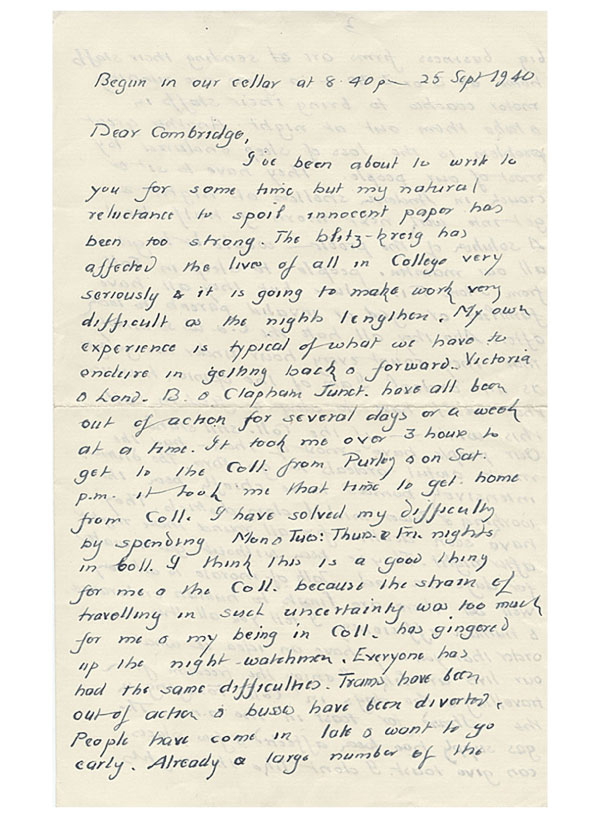 Begun in our cellar at 8.40 pm 25 Sept 1940
Dear Combridge,
I've been about to write to
you for some time but my natural
reluctance to spoil innocent paper has
been too strong. The blitz-kreig has
affected the lives of all in College very
seriously & it is going to make work very
difficult as the nights lengthen. My own
experience is typical of what we have to
endure in getting back & forward. Victoria
& Lond. B. & Clapham Junct. have all been
out of action for several days or a week
at a time. It took me over 3 hours to
get to the Coll. from Purley & on Sat.
p.m. it took me that time to get home
from Coll. I have solved my difficulty
by spending Mon & Tues: Thur. & Fri. nights
in Coll. I think this is a good thing
for me & the Coll. because the strain of
travelling in such uncertainty was too much
for me & my being in Coll. has gingered
up the night-watchmen. Everyone has
had the same difficulties. Trams have been
out of action & buses have been diverted.
People have come in late & want to go
early. Already a large number of the